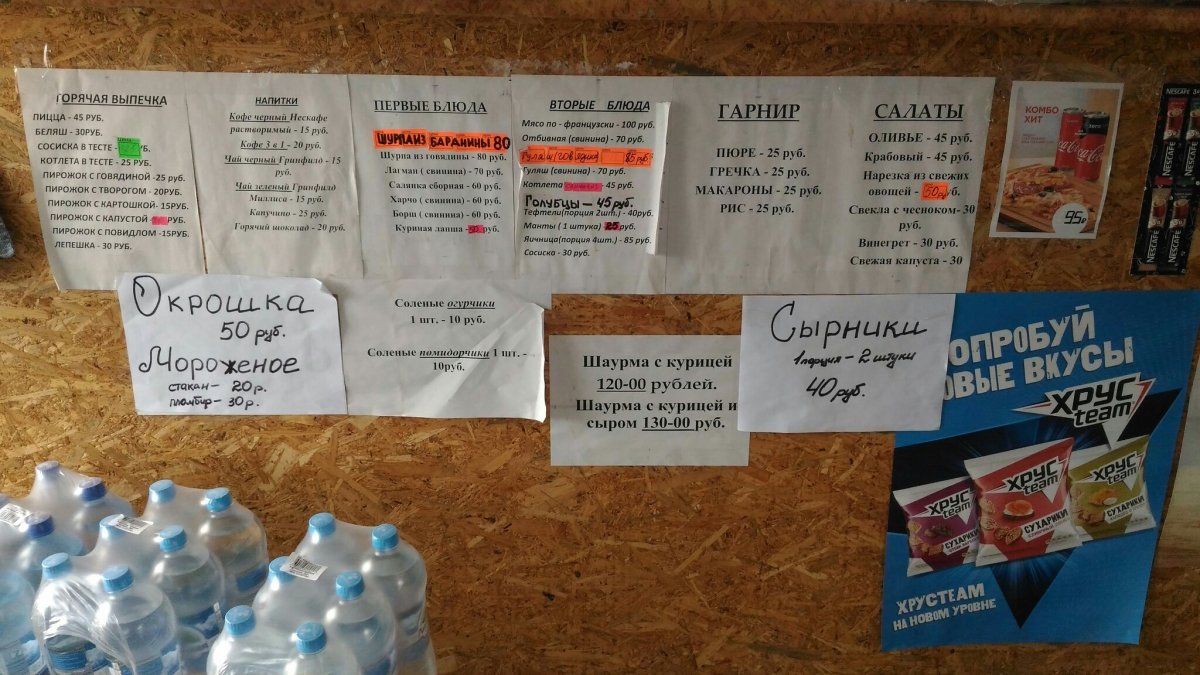 ГОРЯЧАЯ ВЫПЕЧКА
ПИЦЦА - 45 РУБ.
БЕЛЯШ - 30РУБ.
СОСИСКА В ТЕСТЕ - Б.
КОТЛЕТА В ТЕСТЕ - 25 РУБ.
ПИРОЖОК С ГОВЯДИНОЙ -25 руб.
ПИРОЖОК С ТВОРОГОМ - 20РУБ.
ПИРОЖОК С КАРТОШКОЙ - 15РУБ.
ПИРОЖОК С КАПУСТОЙ - РУБ.
ПИРОЖОК С ПОВИДЛОМ -15РУБ.
ЛЕПЕШКА - 30 РУБ.
НАПИТКИ
Кофе черный Нескафе
растворимый - 15 руб.
Кофе 3 в 1 - 20 руб.
Чай черный Гринфилд - 15
руб.
Чай зеленый Гринфилд
Милисса - 15 руб.
Капучино - 25 руб.
Горячий шоколад - 20 руб.
ПЕРВЫЕ БЛЮДА
ШУРПА ИЗ БАРАНИНЫ 80
Шурпа из говядины - 80 руб.
Лагман ( свинина) - 70 руб.
Салянка сборная - 60 руб.
Харчо ( свинина) - 60 руб.
Борщ ( свинина) - 60 руб.
Куриная лапша - руб.
ВТОРЫЕ БЛЮДА
Мясо по - французски - 100 руб.
Отбивная (свинина) - 70 руб.
Гуляш (говядина) 85 руб
Гуляш (свинина) - 70 руб.
Котлета - 45 руб.
Голубцы - 45 руб.
Тефтели(порция 2шт.) - 40руб.
Манты ( 1 штука) 25 руб.
Яичница(порция 4шт.) - 85 руб.
Сосиска - 30 руб.
ГАРНИР
ПЮРЕ - 25 руб.
ГРЕЧКА - 25 руб.
МАКАРОНЫ - 25 руб.
РИС - 25 руб.
САЛАТЫ
ОЛИВЬЕ - 45 руб.
Крабовый - 45 руб.
Нарезка из свежих
овощей - 50руб.
Свекла с чесноком- 30
руб.
Винегрет - 30 руб.
Свежая капуста - 30
КОМБО
ХИТ
Coca-Cola
zero
95₽
NESCAFÉ
NESCAFÉ
NESCAFÉ
Окрошка
50 руб.
Мороженое
стакан - 20 р.
пломбир - 30 р.
Соленые огурчики
1 шт. - 10 руб.
Соленые помидорчики 1 шт. -
10руб.
Шаурма с курицей
120-00 рублей.
Шаурма с курицей и
сыром 130-00 руб.
Сырники
1 порция - 2 штуки
40 руб.
ОПРОБУЙ
ОВЫЕ ВКУСЫ
ХРУС
team
ХРУС
team
СУХАРИКИ
ХРУС
team
СУХАРИКИ
ХРУС
team
СУХАРИКИ
ХРУСТЕАМ
НА НОВОМ УРОВНЕ